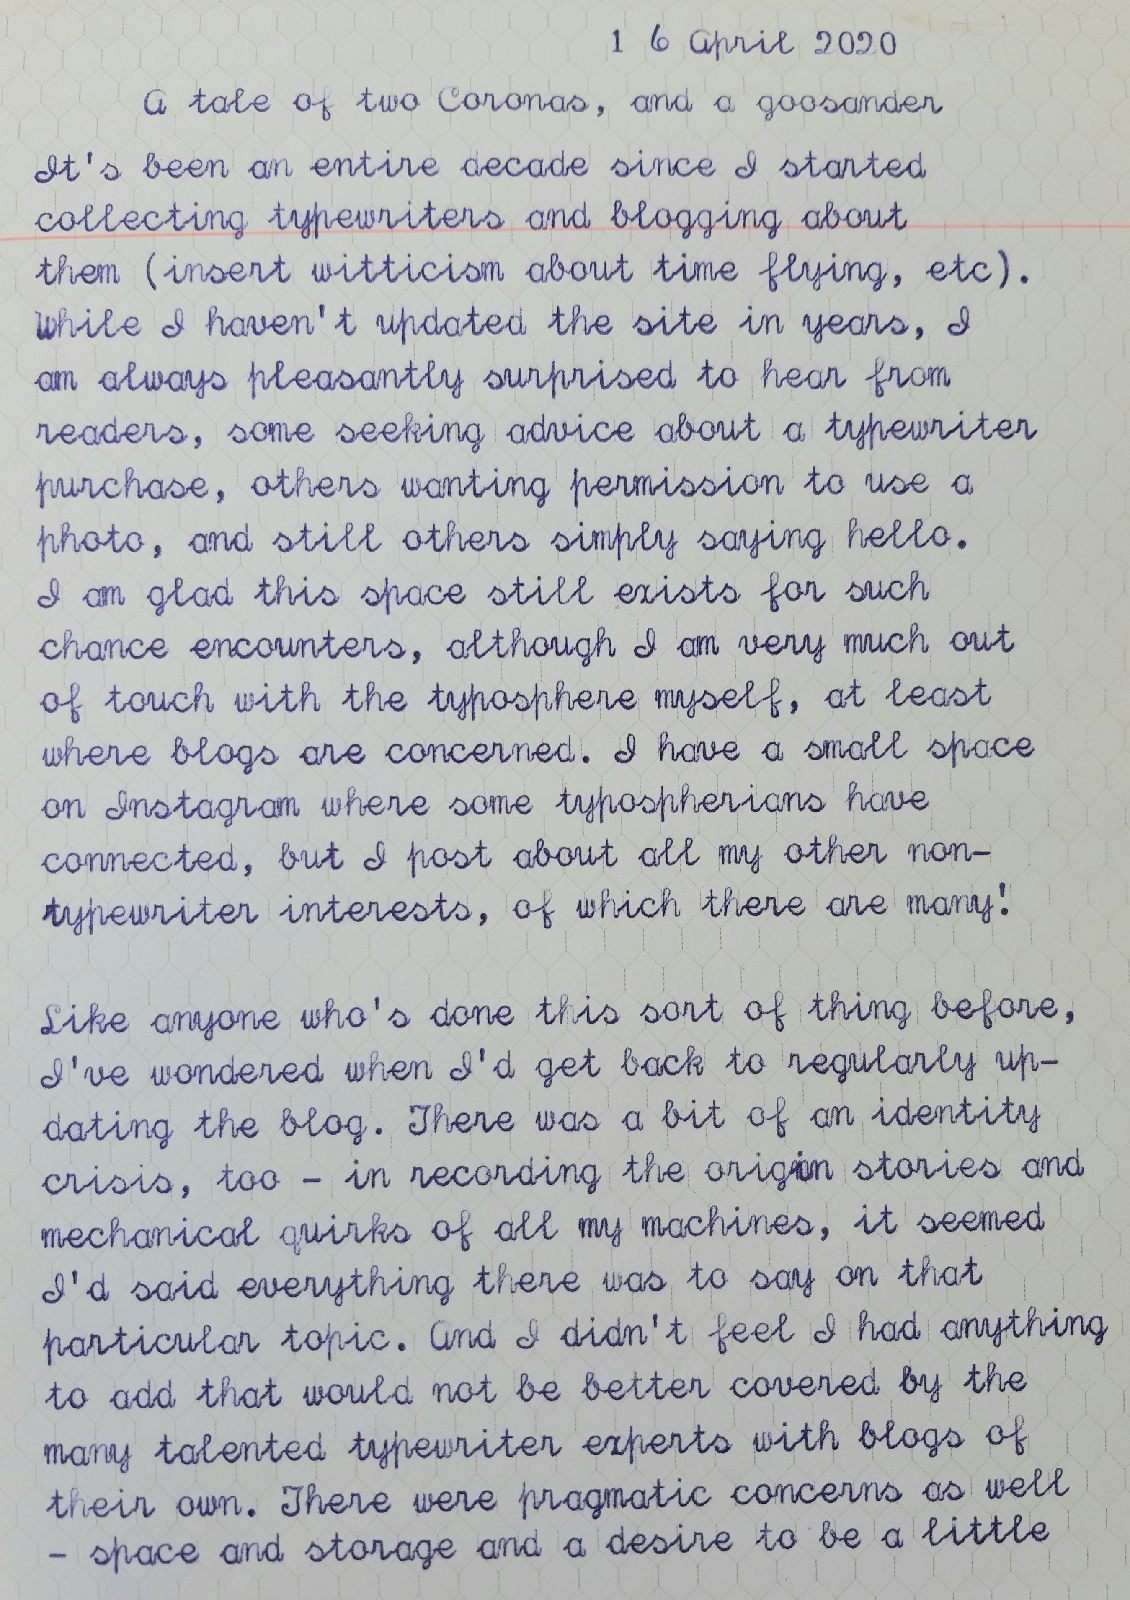 1 6 April 2020
A tale of two Coronas, and a goosander
It's been an entire decade since I started
collecting typewriters and blogging about
them (insert witticism about time flying, etc).
While I haven't updated the site in years, I
am always pleasantly surprised to hear from
readers, some seeking advice about a typewriter
purchase, others wanting permission to use a
photo, and still others simply saying hello.
I am glad this space still exists for such
chance encounters, although I am very much out
of touch with the typosphere myself, at least
where blogs are concerned. I have a small space
on Instagram where some typospherians have
connected, but I post about all my other non-
typewriter interests, of which there are many!
Like anyone who's done this sort of thing before,
I've wondered when I'd get back to regularly up-
dating the blog. There was a bit of an identity
crisis, too - in recording the origin stories and
mechanical quirks of all my machines, it seemed
I'd said everything there was to say on that
particular topic. And I didn't feel I had anything
to add that would not be better covered by the
many talented typewriter experts with blogs of
their own. There were pragmatic concerns as well
- space and storage and a desire to be a little